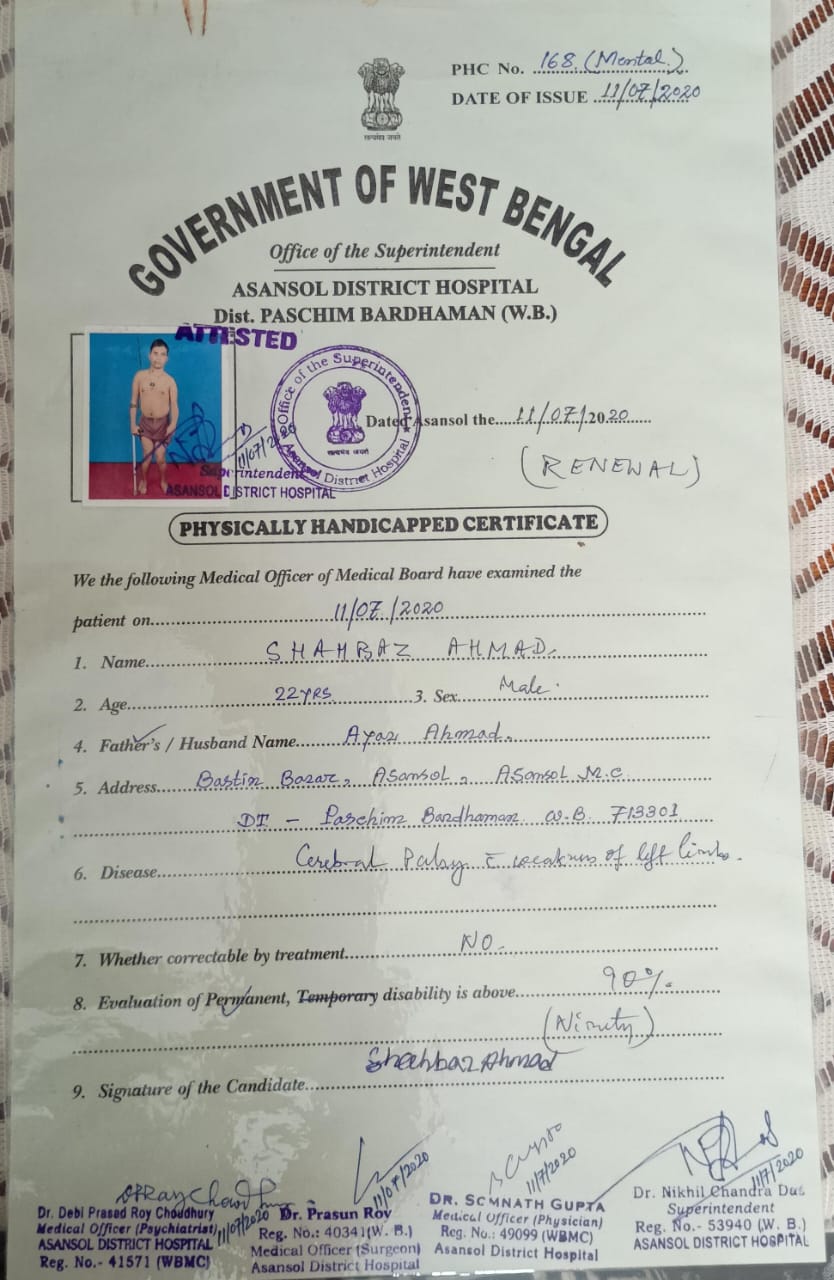 PHC No. 168 (Mental)
DATE OF ISSUE 11/07/2020
सत्यमेव जयते
GOVERNMENT OF WEST BENGAL
Office of the Superintendent
ASANSOL DISTRICT HOSPITAL
Dist. PASCHIM BARDHAMAN (W.B.)
ATTESTED
Office of the Superintendent
Asansol District Hospital
सत्यमेव जयते
Dated Asansol the 11/07/2020
(RENEWAL)
11/07/2020
Superintendent
ASANSOL DISTRICT HOSPITAL
PHYSICALLY HANDICAPPED CERTIFICATE
We the following Medical Officer of Medical Board have examined the
patient on 11/07/2020
1. Name SHAHBAZ AHMAD.
2. Age 22 YRS. 3. Sex Male.
4. Father's / Husband Name Ayaz Ahmad.
5. Address Bastin Bazar, Asansol, Asansol M.C
DT - Paschim Bardhaman W.B. 713301
6. Disease Cerebral Palsy c̄ weakness of left limbs.
7. Whether correctable by treatment NO.
8. Evaluation of Permanent, Temporary disability is above 90%.
(Ninety)
9. Signature of the Candidate Shahbaz Ahmad
11/07/2020
11/7/2020
11/7/2020
11/07/2020
Dr. Debi Prasad Roy Choudhury
Medical Officer (Psychiatrist)
ASANSOL DISTRICT HOSPITAL
Reg. No.- 41571 (WBMC)
Dr. Prasun Roy
Reg. No.: 40341(W. B.)
Medical Officer (Surgeon)
Asansol District Hospital
DR. SOMNATH GUPTA
Medical Officer (Physician)
Reg. No.: 49099 (WBMC)
Asansol District Hospital
Dr. Nikhil Chandra Das
Superintendent
Reg. No.- 53940 (W. B.)
ASANSOL DISTRICT HOSPITAL